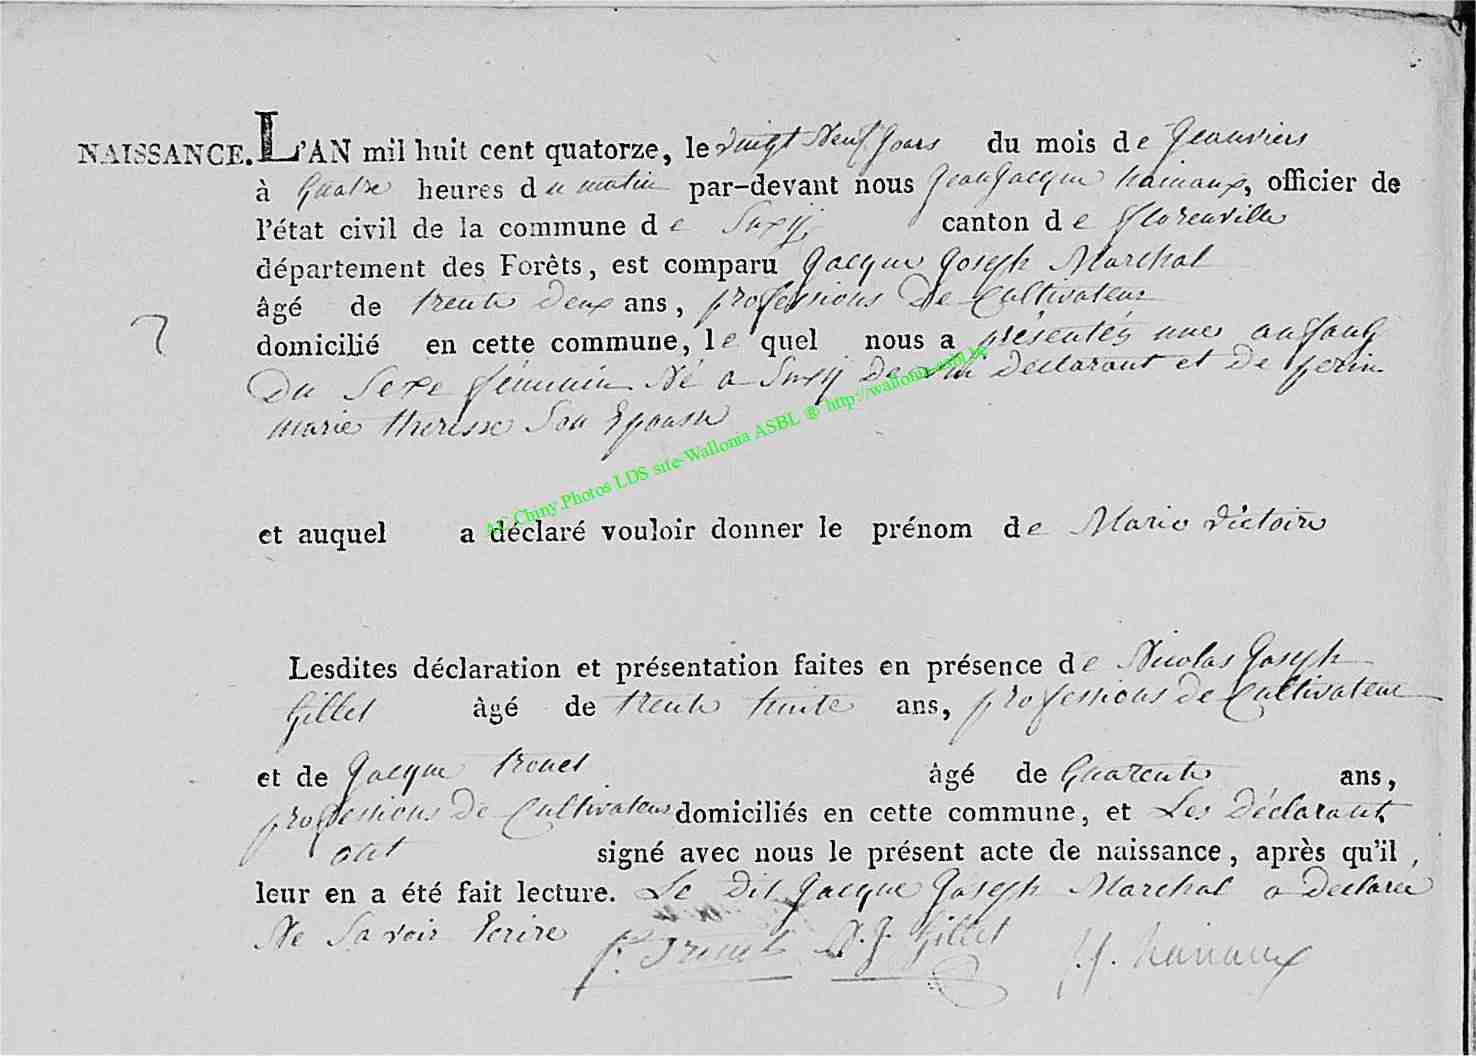 NAISSANCE. L'AN mil huit cent quatorze, le vingt Neuf Jours du mois de Jeanviers
à Quatre heures du matin par-devant nous Jean Jacque hainaux, officier de
l'état civil de la commune de Suxÿ canton de florenville
département des Forêts, est comparu Jacque Joseph Marchal
âgé de trente deux ans, professions De Cultivateur
domicilié en cette commune, le quel nous a présentés une anfant
Du Sexe féminin Né a Suxÿ De lui Declarant et De
marie theresse Son Epouse
AC Chiny.Photos LDS site-Wallonia ASBL @ http://wallonia-asbl.be
et auquel a déclaré vouloir donner le prénom de Marie victoire
Lesdites déclaration et présentation faites en présence de Nicolas Joseph
Gillet âgé de trente huite ans, professions de Cultivateur
et de Jacque trouet âgé de Quarente ans,
professions De Cultivateur domiciliés en cette commune, et Les Déclarant
ont signé avec nous le présent acte de naissance, après qu'il
leur en a été fait lecture. Le Dit Jacque Joseph Marchal a Declarer
Ne Savoir Ecrire N. J. Gillet J. J. hainaux